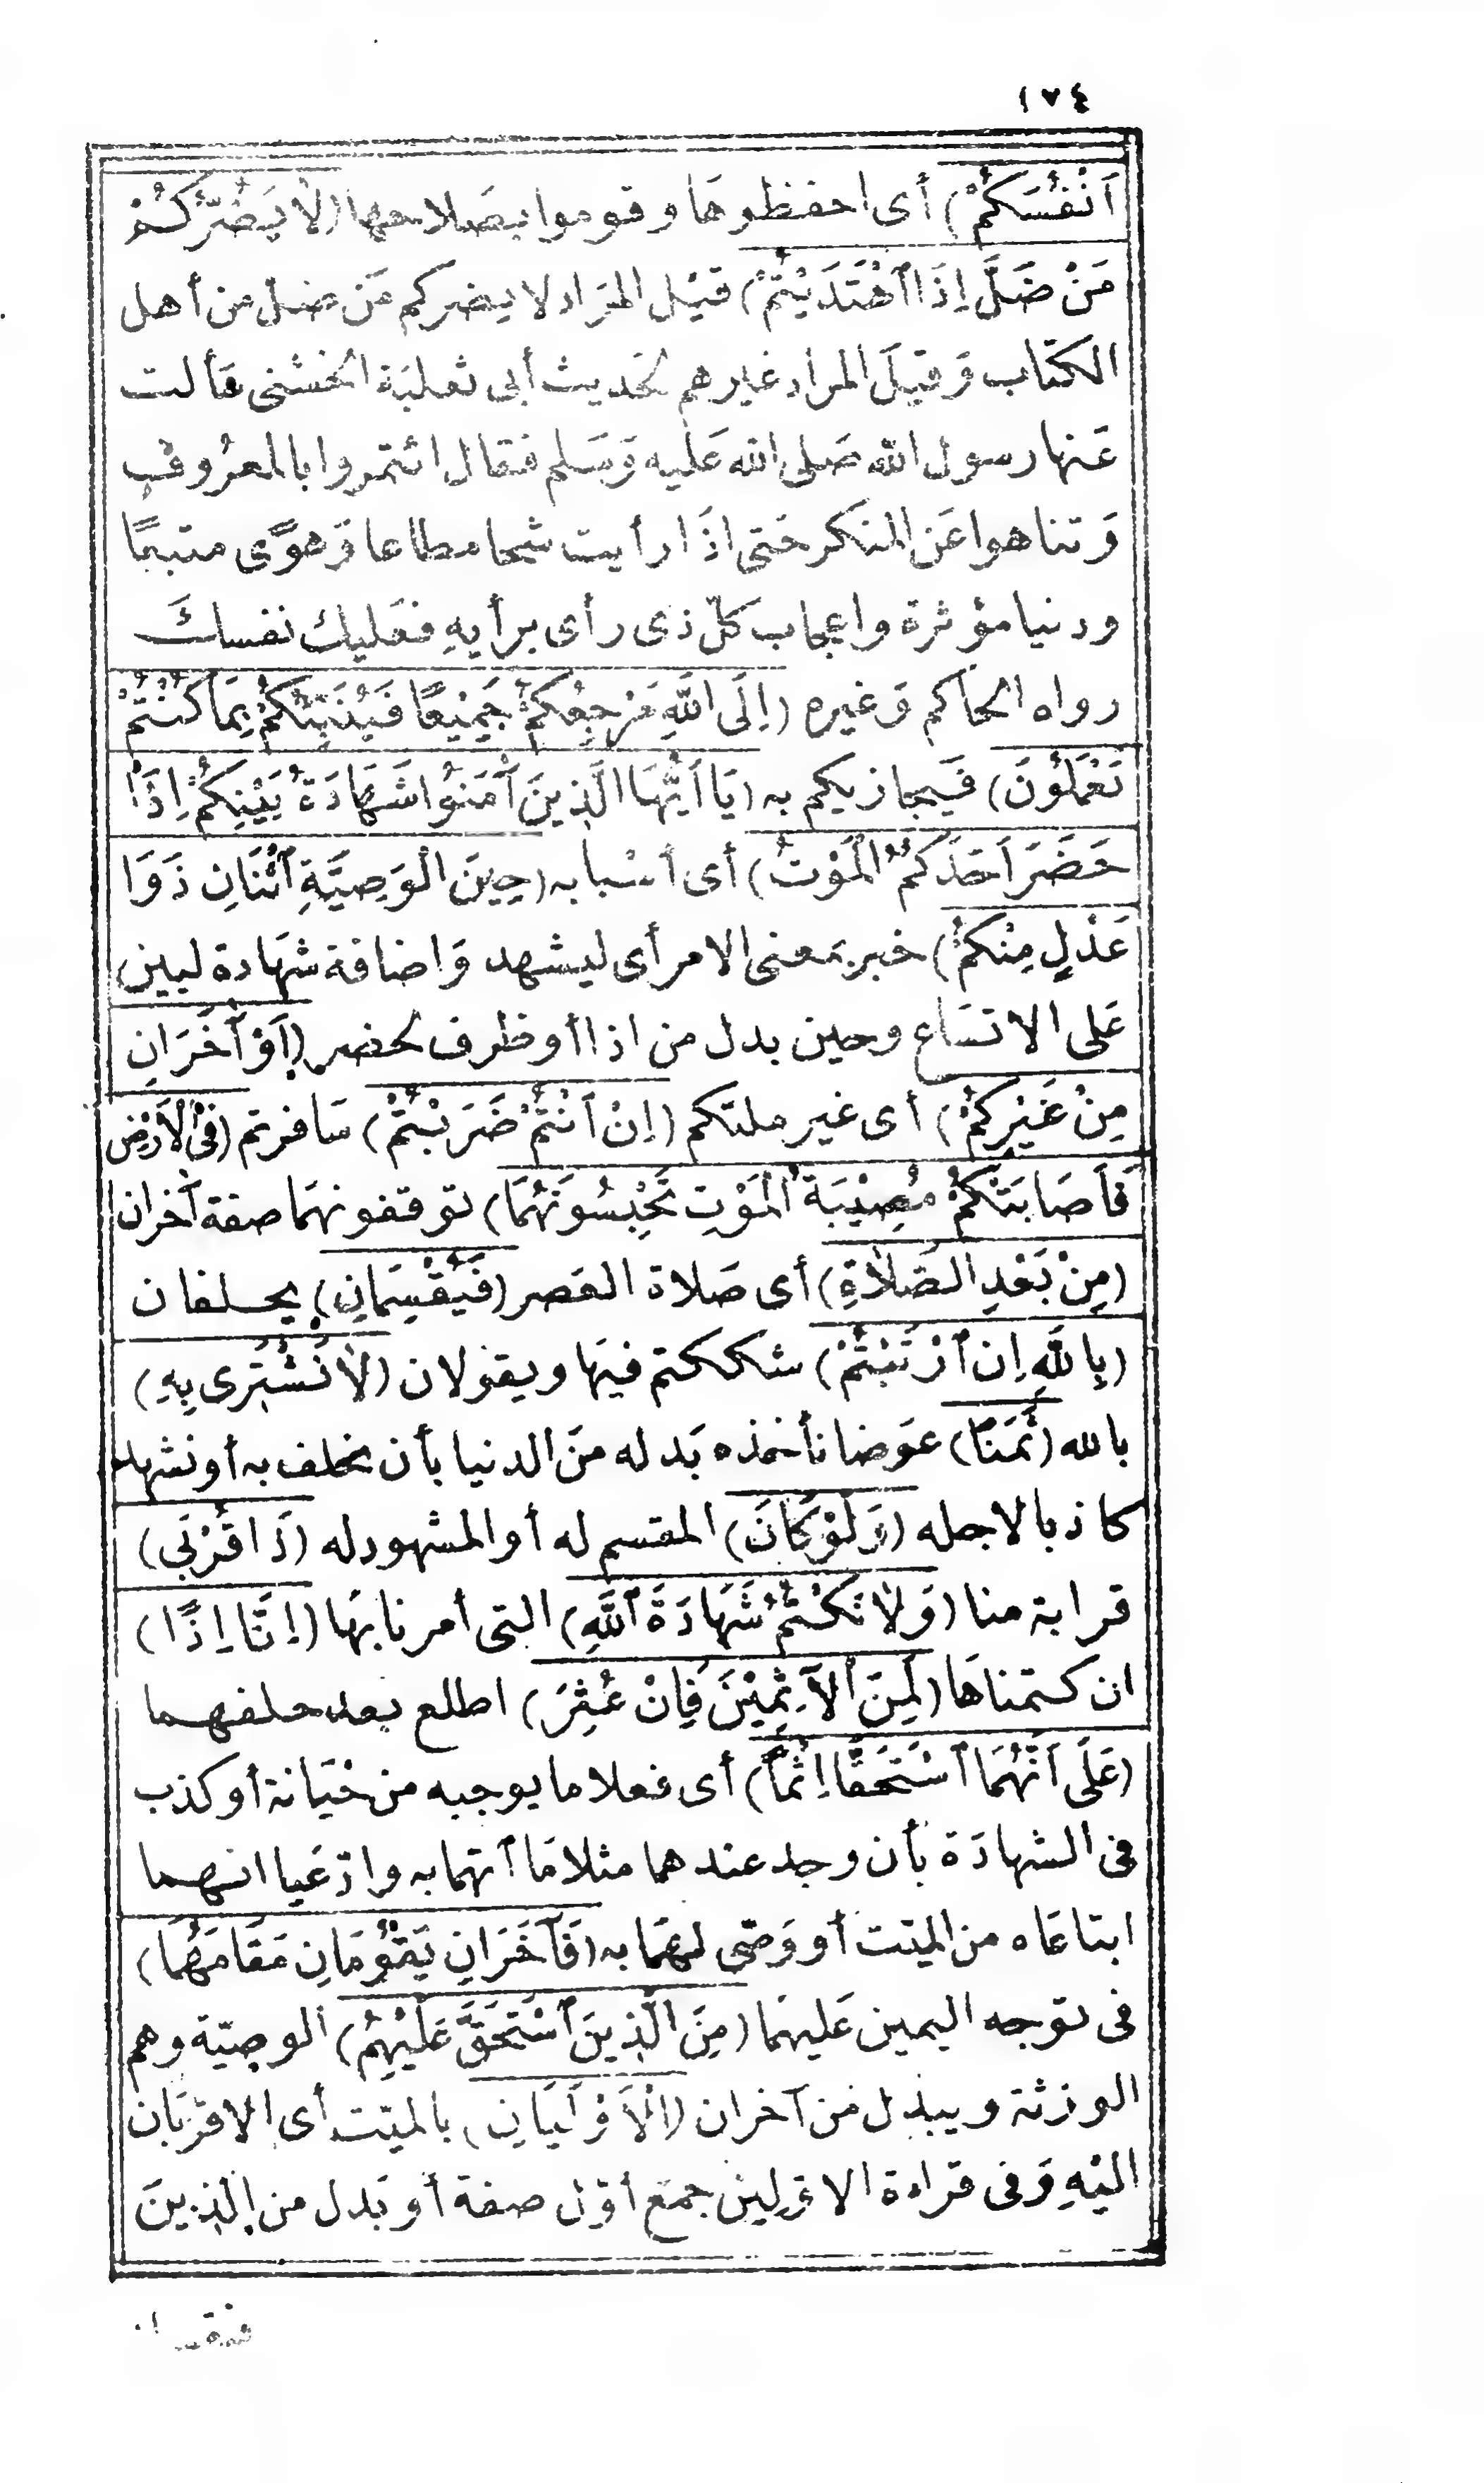 ١٧٤
اَنْفُسَكُمْ) أى احفظوهَا وقوموا بصَلاحها (لاٰ يَضُرُّكُمْ
مَنْ ضَلَّ اِذَا ٱهْتَدَيْتُمْ) قيْل المرَاد لا يضركم مَن ضل من أهل
الكتاب وَقيلَ المراد غيرهم لحَديث أبى ثعلبَة الخشنى سألت
عَنها رسول الله صَلى الله عَليه وَسَلم فقال ائتمروا بالمعرُوف
وَتناهوا عَن المنكر حَتى اذَا رأيت شحا مطاعا وَهوًى متبعًا
ودنيا مؤثرة واعجاب كلّ ذى رأى برأيهِ فعَليك نفسكَ
رواه الحَاكم وَغيره (اِلَى اللَّهِ مَرْجِعُكُمْ جَمِيْعًا فَيُنَبِّئُكُمْ بِمَا كُنْتُمْ
تَعْمَلُوْنَ) فَيجازيكم به (يَا اَيُّهَا الَّذِينَ آٰمَنُوا شَهَادَةُ بَيْنِكُمْ اِذَا
حَضَرَ اَحَدَكُمُ الْمَوْتُ) أى أسْبابه (حِينَ الْوَصِيَّةِ ٱثْنَانِ ذَوَا
عَدْلٍ مِنْكُمْ) خبر بمَعنى الامر أى ليشهد وَاضافة شهَادة لبين
عَلى الاتسَاع وحين بدل من اذا أو ظرف لحضر (اَوْ آخَرَانِ
مِنْ غَيْرِكُمْ) أى غير ملتكم (اِنْ اَنْتُمْ ضَرَبْتُمْ) سَافرتم (فِى الْاَرْضِ
فَاَصَابَتْكُمْ مُصِيْبَةُ الْمَوْتِ تَحْبِسُوْنَهُمَا) توقفونهمَا صفة آخران
(مِنْ بَعْدِ الصَّلاٰةِ) أى صَلاة العَصر (فَيُقْسِمَانِ) يحلفان
(بِاللَّهِ اِن ٱرْتَبْتُمْ) شككتم فيهَا ويقولان (لاٰ نَشْتَرِى بِهِ)
بالله (ثَمَنًا) عوَضا نأخذه بَدله منَ الدنيا بأن نحلف به أو نشهد
كاذبا لاجله (وَلَوْ كَانَ) المقسم له أو المشهود له (ذَا قُرْبَى)
قرابة منا (وَلاٰ نَكْتُمُ شَهَادَةَ ٱللَّهِ) التى أمرنا بهَا (اِنَّا اِذًا)
ان كتمناهَا (لَمِنَ الْآثِمِيْنَ فَاِنْ عُثِرَ) اطلع بعد حلفهما
(عَلَى اَنَّهُمَا ٱسْتَحَقَّا اِثْمًا) أى فعلا ما يوجبه من خيَانة أو كذب
فى الشهادَة بأن وجد عندهما مثلا مَا ٱتهما به وادّعَيا انهما
ابتاعَاه من الميّت أو وَصّى لهمَا به (فَآخَرَانِ يَقُوْمَانِ مَقَامَهُمَا)
فى توَجه اليمين عَليهمَا (مِنَ الَّذِينَ ٱسْتَحَقَّ عَلَيْهِمُ) الوصيّة وهم
الورَثة ويبدل من آخران (الْاَوْلَيَانِ) بالميّت أى الاقرَبان
اليْهِ وَفى قراءة الاوّلين جمَع أوّل صفة أو بَدل من الذينَ
فيقسمان